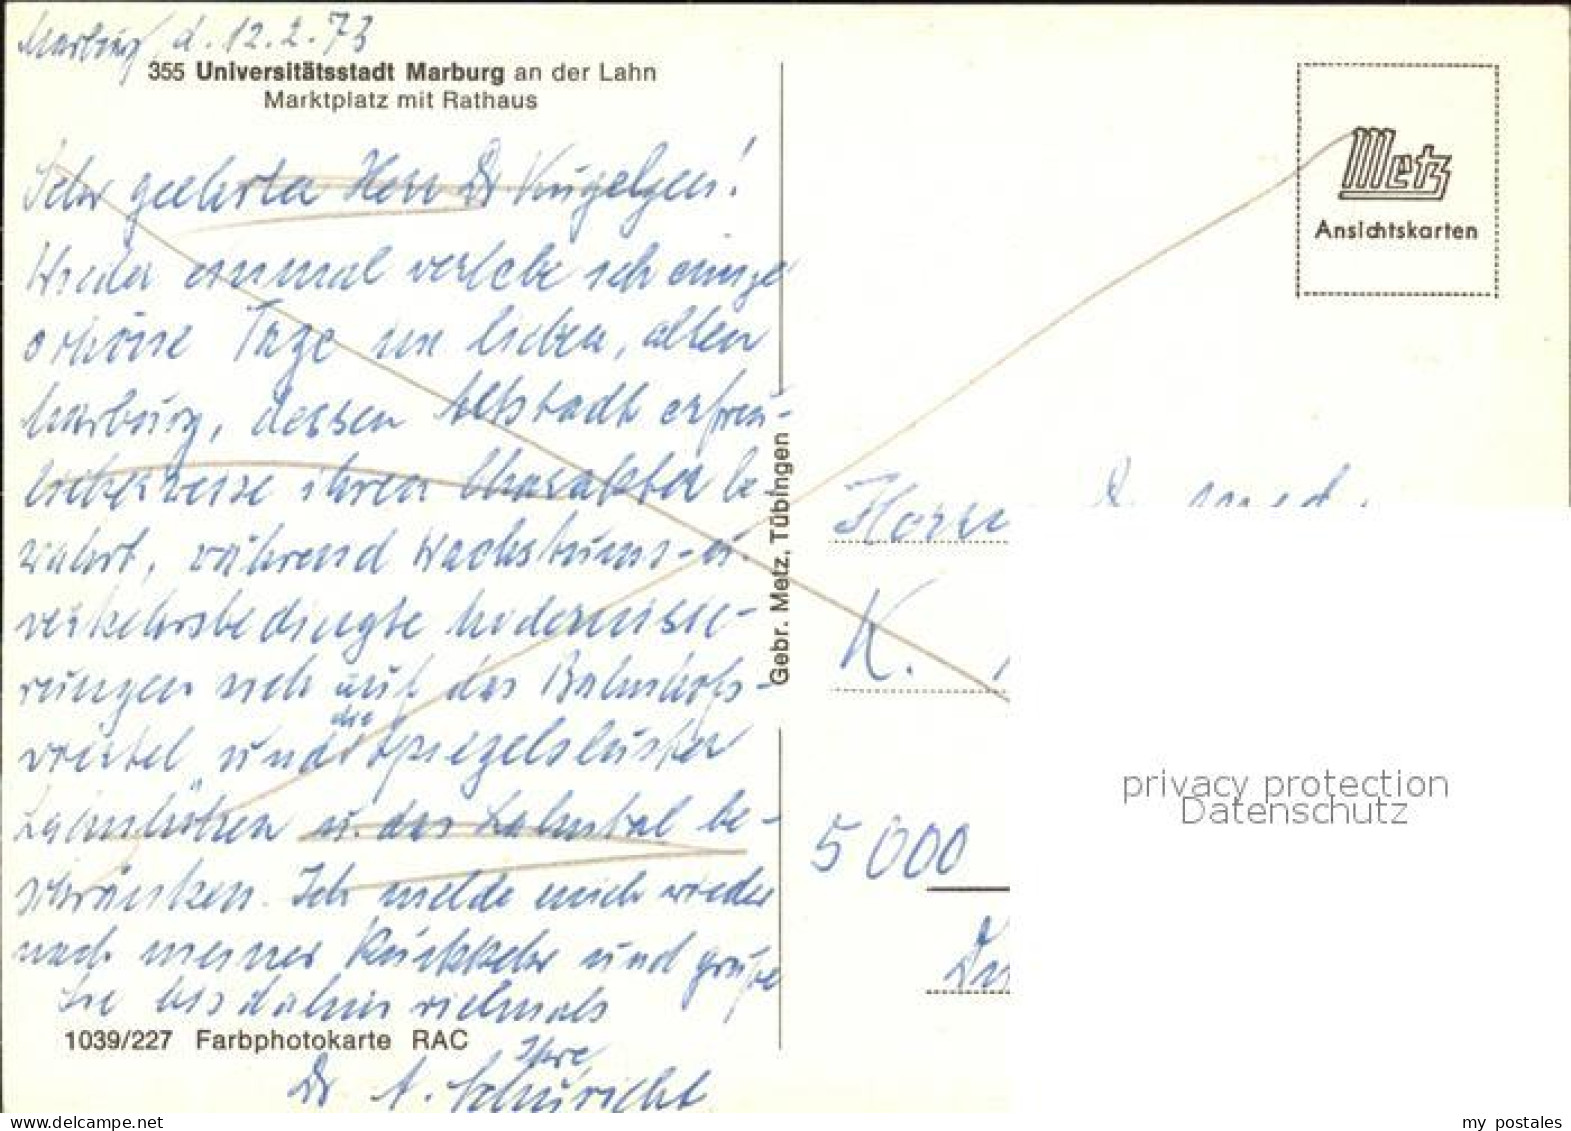 Marburg, d. 12.2.73
355 Universitätsstadt Marburg an der Lahn
Marktplatz mit Rathaus
Sehr geehrter Herr Dr Kügelgen!
Wieder einmal verlebe ich einige
schöne Tage im lieben, alten
Marburg, dessen Altstadt erfreu-
licherweise ihren Charakter be
wahrt, während Wachstums- u.
verkehrsbedingte Modernisie-
rungen sich auf das Bahnhofs-
viertel und die Spiegelsluster
Lahnhöhen u. das Lahntal be-
schränken. Ich melde mich wieder
nach meiner Rückkehr und grüße
Sie bis dahin vielmals
Ihre
Dr A. Schuricht
1039/227 Farbphotokarte RAC
Gebr. Metz, Tübingen
Metz
Ansichtskarten
Herrn Dr. med.
K.
5000
privacy protection
Datenschutz
www.delcampe.net
my_postales